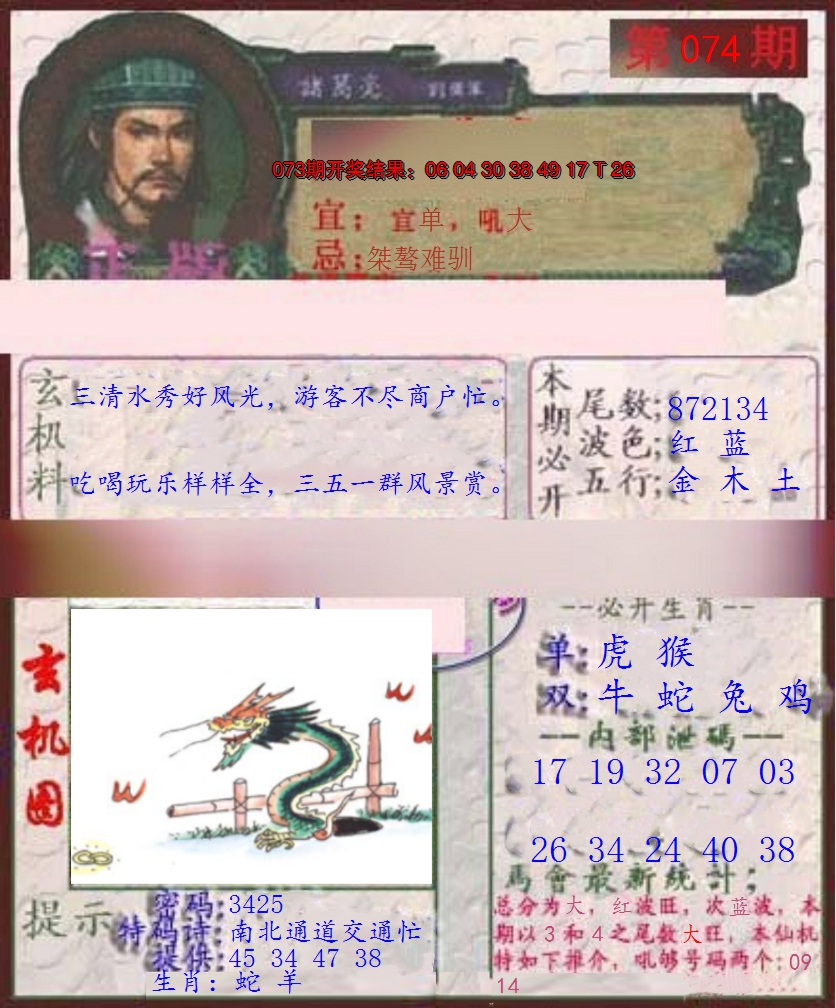 第 074 期
諸葛亮
073期开奖结果：06 04 30 38 49 17 T 26
宜；宜单，吼大
忌；桀骜难驯
正版
玄机料
三清水秀好风光，游客不尽商户忙。
吃喝玩乐样样全，三五一群风景赏。
本期必开
尾数；872134
波色；红 蓝
五行；金 木 土
玄机图
--必开生肖--
单：虎 猴
双：牛 蛇 兔 鸡
--内部泄碼--
17 19 32 07 03
26 34 24 40 38
馬會最新統計；
总分为大，红波旺，次蓝波，本
期以3和4之尾数大旺，本仙机
特如下推介，吼够号码两个:09
14
提示
密码:3425
特码诗:南北通道交通忙
提供:45 34 47 38
生肖：蛇 羊